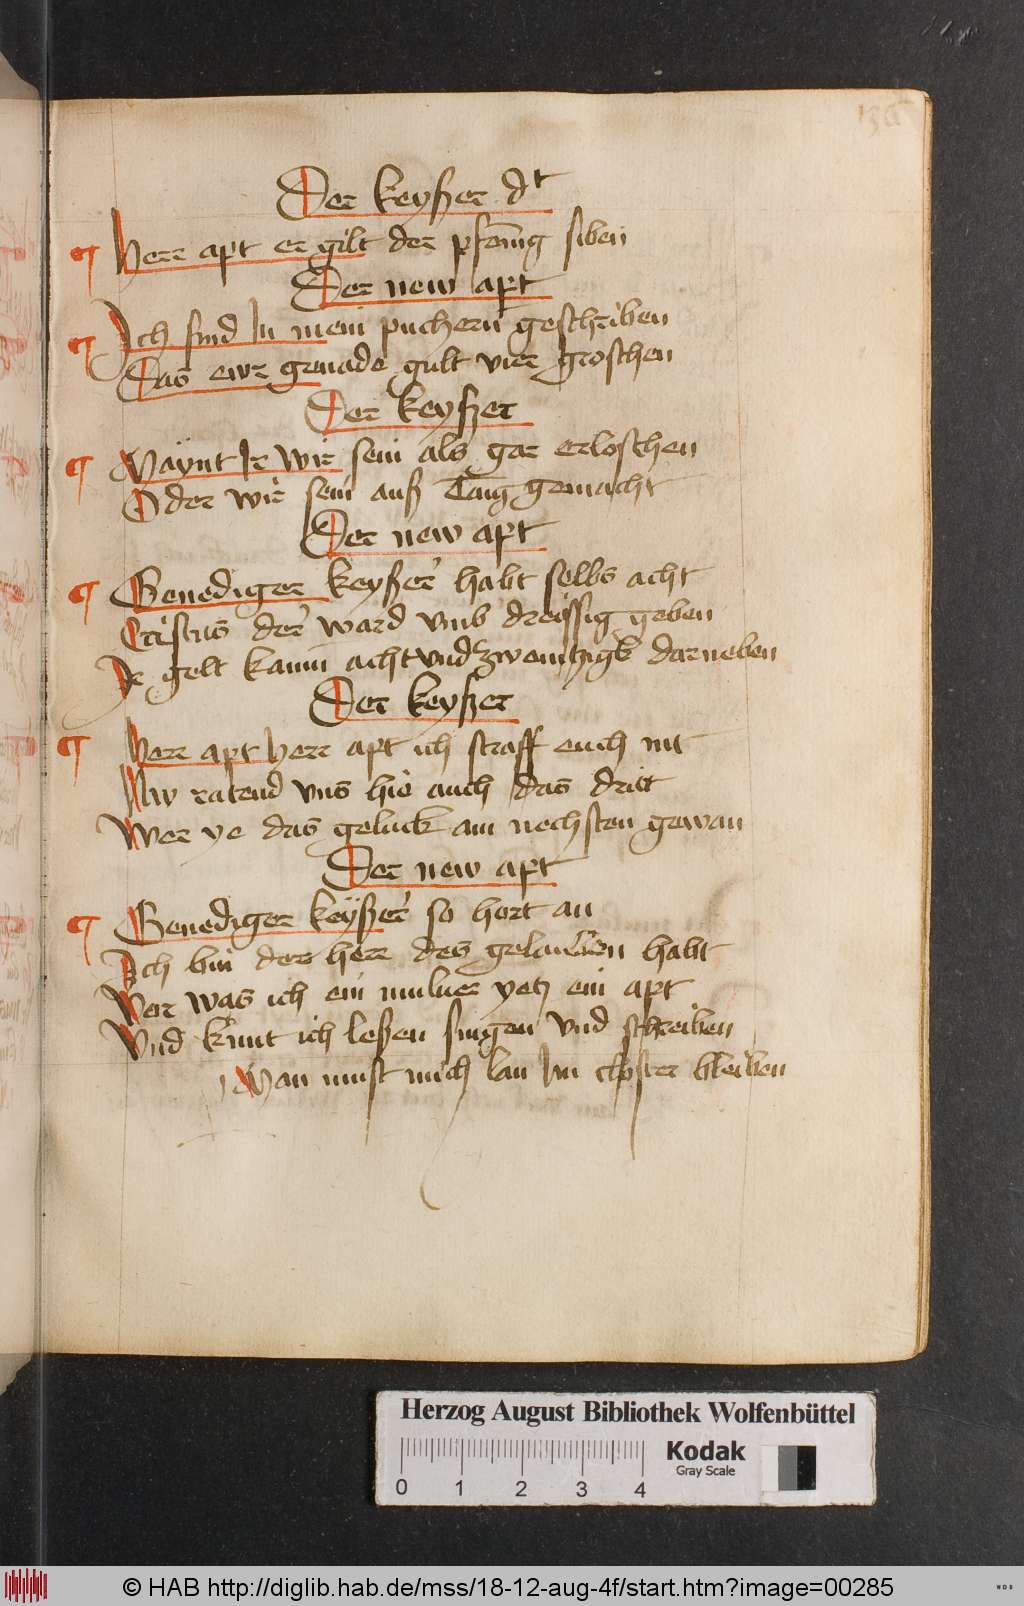 Der keyßer dt
Herr apt er gilt der pfenig siben
Der new apt
Ich find In mein puchern geschriben
Das ewr genade gult vier groschen
Der keyßer
Maynt Ir wir sein als gar erloschen
Oder wir sein auß Taig gemacht
Der new apt
Genediger keyßer habt selbs acht
Cristus der ward vmb dreissig geben
Ir gelt kaum acht vnd zweintzigk darneben
Der keyßer
Herr apt herr apt ich straff euch nit
Nw ratend vns hie auch das dritt
Wer ye das geluck am nechsten gewan
Der new apt
Genediger keyßer so hort an
Ich bin der herr des gelauben habt
Vor was ich ein mulner yetz ein apt
Vnd kunt ich leßen singen vnd schreiben
Man must mich lan Im closter bleiben
Herzog August Bibliothek Wolfenbüttel
Kodak
Gray Scale
0 1 2 3 4
© HAB http://diglib.hab.de/mss/18-12-aug-4f/start.htm?image=00285